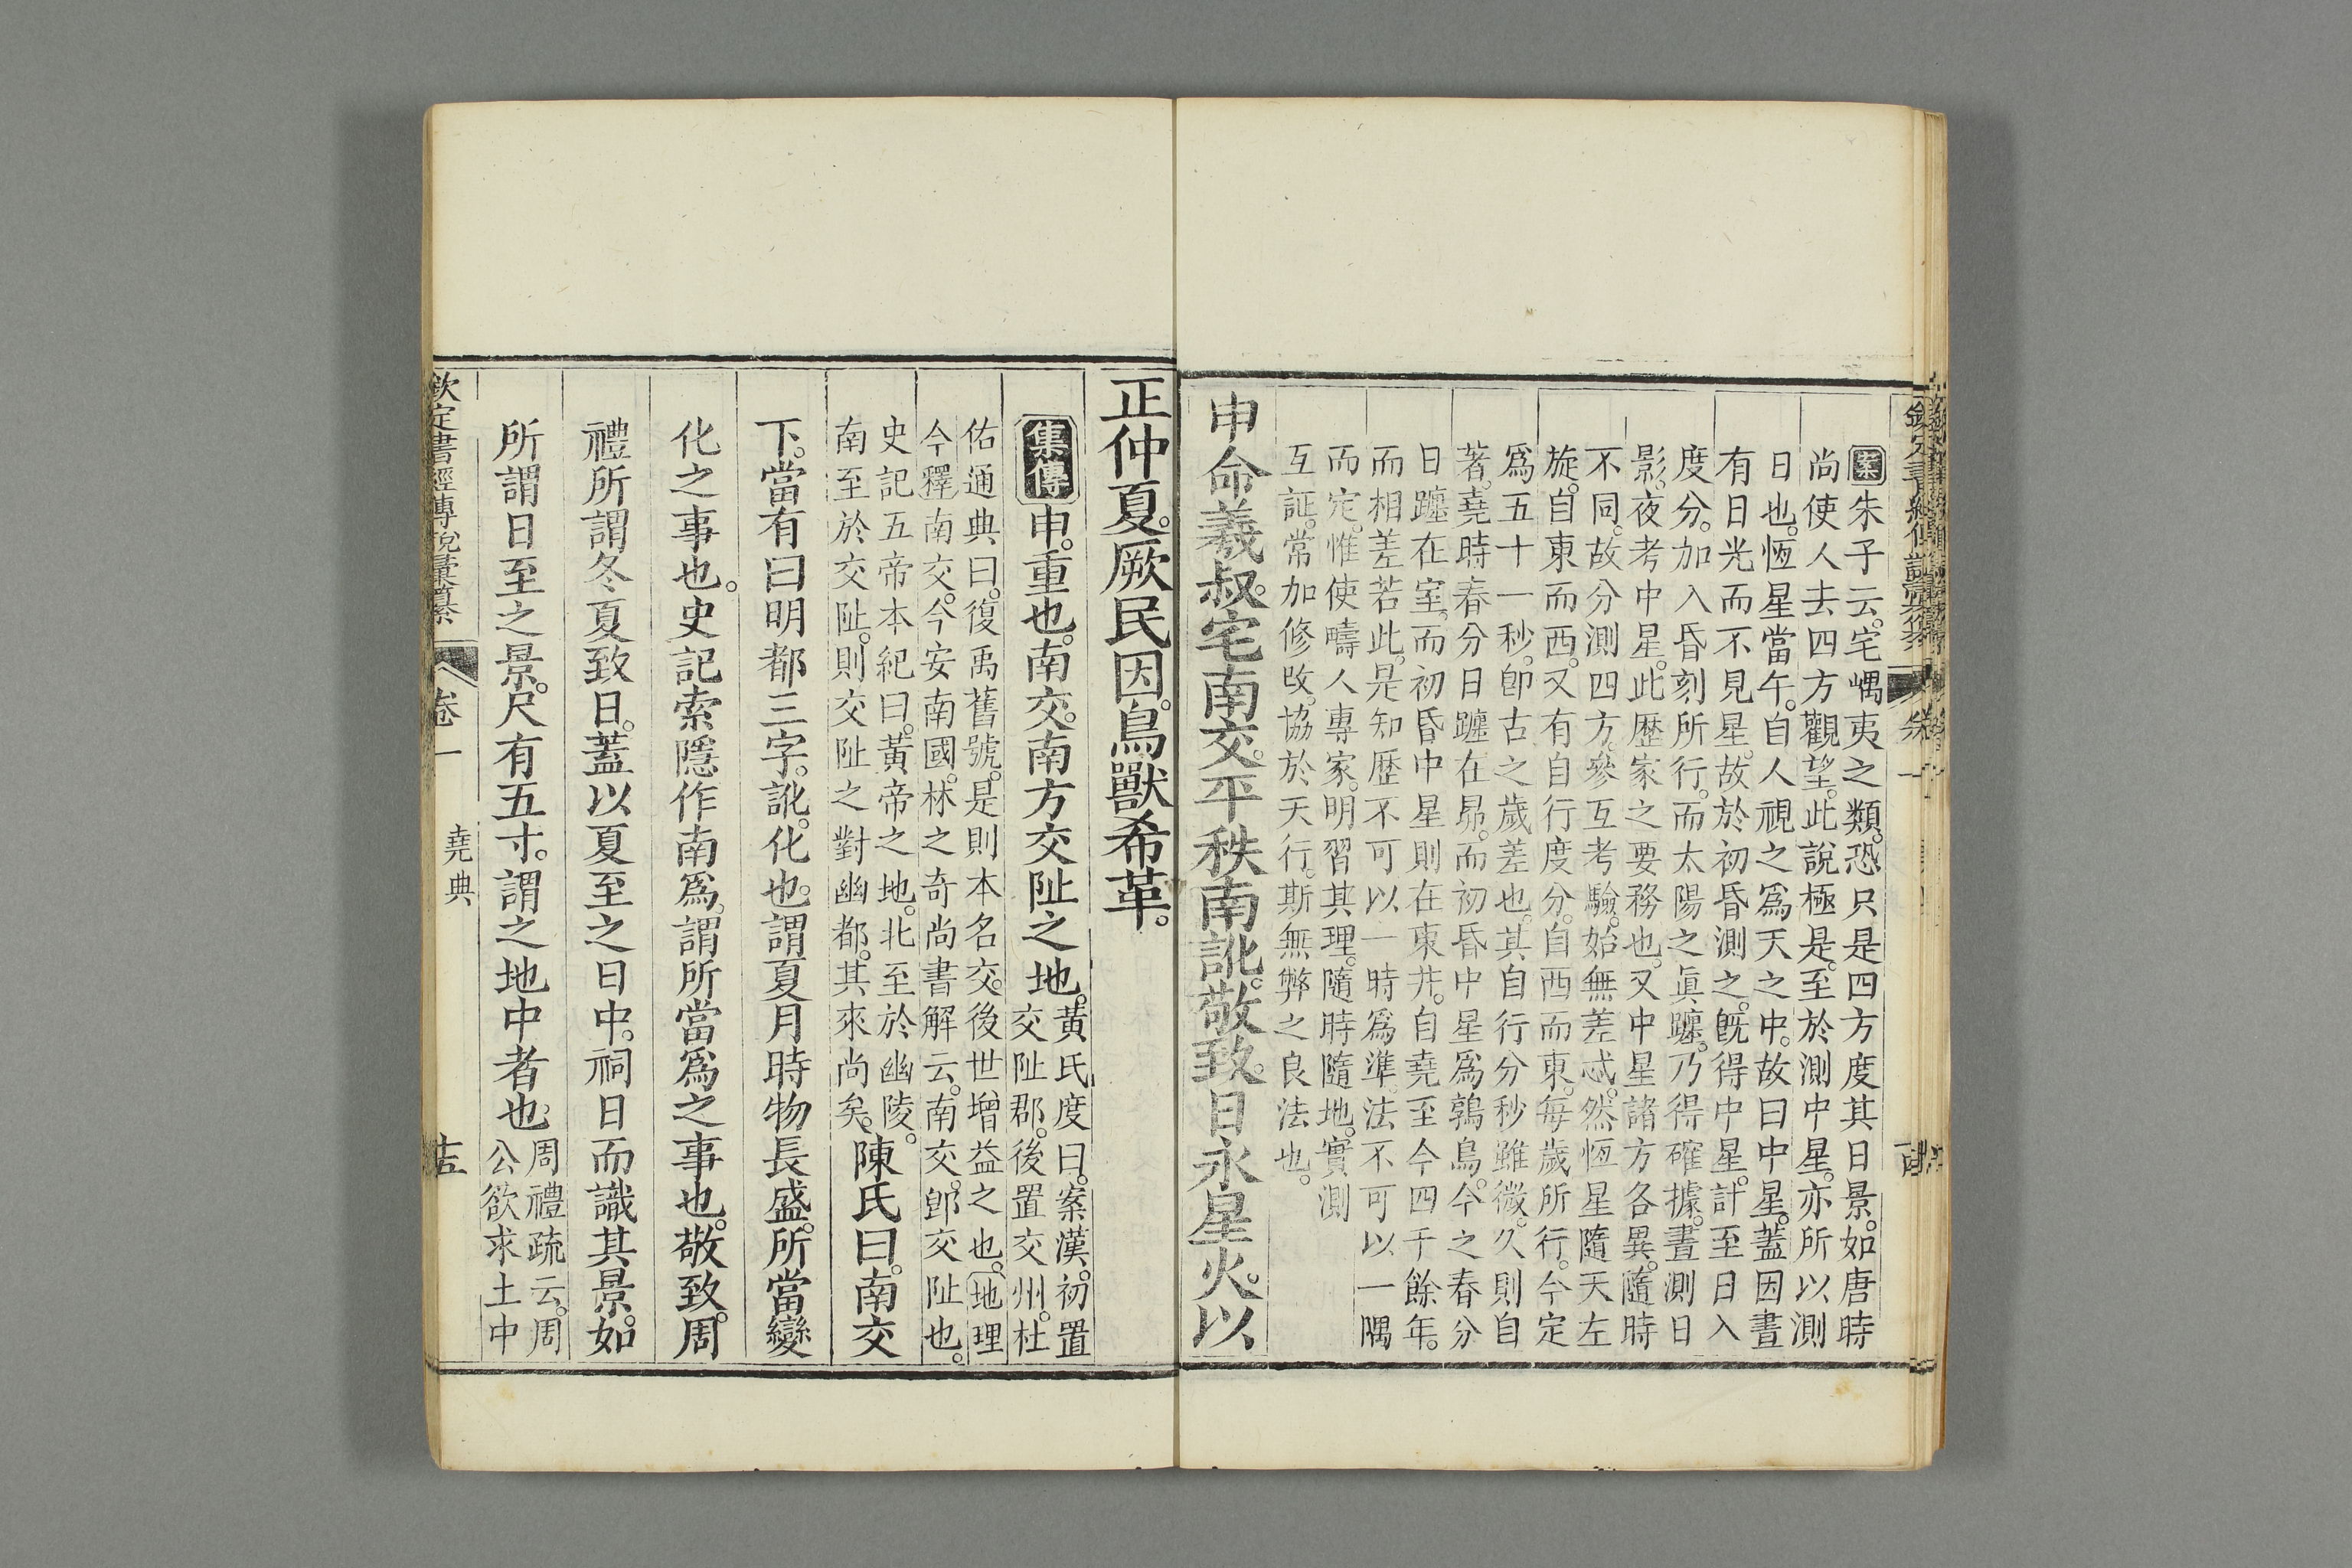 案朱子云。宅嵎夷之類。恐只是四方度其日景。如唐時
尚使人去四方觀望。此說極是。至於測中星。亦所以測
日也。恆星當午。自人視之爲天之中。故曰中星。蓋因晝
有日光而不見星。故於初昏測之。旣得中星。計至日入
度分。加入昏刻所行。而太陽之眞躔。乃得確據。晝測日
影。夜考中星。此歷家之要務也。又中星諸方各異。隨時
不同。故分測四方。參互考驗。始無差忒。然恆星隨天左
旋。自東而西。又有自行度分。自西而東。每歲所行。今定
爲五十一秒。卽古之歲差也。其自行分秒雖微。久則自
著。堯時春分日躔在昴。而初昏中星爲鶉鳥。今之春分
日躔在室。而初昏中星則在東井。自堯至今四千餘年。
而相差若此。是知歷不可以一時爲準。法不可以一隅
而定。惟使疇人專家。明習其理。隨時隨地。實測
互証。常加修改。協於天行。斯無弊之良法也。
申命羲叔。宅南交。平秩南訛。敬致。日永星火。以
正仲夏。厥民因。鳥獸希革。
集傳申。重也。南交。南方交阯之地。黃氏度曰。案漢。初置
交阯郡。後置交州。杜
佑通典曰。復禹舊號。是則本名交。後世增益之也。地理
今釋南交。今安南國。林之奇尚書解云。南交。卽交阯也。
史記五帝本紀曰。黃帝之地。北至於幽陵。
南至於交阯。則交阯之對幽都。其來尚矣。陳氏曰。南交
下。當有曰明都三字。訛。化也。謂夏月時物長盛。所當變
化之事也。史記索隱作南爲。謂所當爲之事也。敬致。周
禮所謂冬夏致日。蓋以夏至之日中。祠日而識其景。如
所謂日至之景。尺有五寸。謂之地中者也。周禮疏云。周
公欲求土中
欽定書經傳說彙纂
卷一
堯典
十五